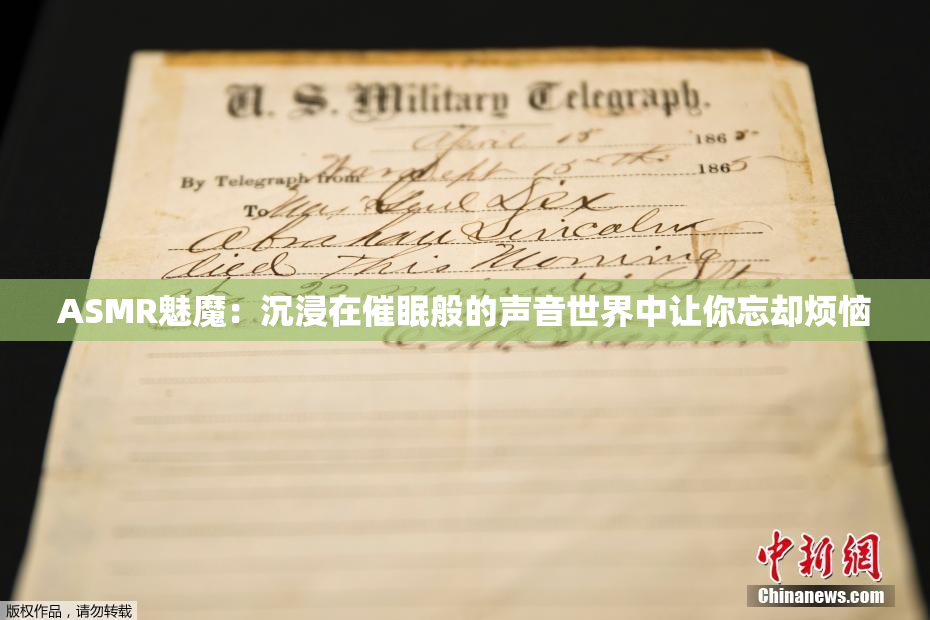 U. S. Military Telegraph.
April 15 1865
By Telegraph from War Dept 15th 1865
To Maj Genl Dix
Abraham Lincoln
died this morning
22 minutes after
ASMR魅魔：沉浸在催眠般的声音世界中让你忘却烦恼
E. M. Stanton
中新网
Chinanews.com
版权作品，请勿转载